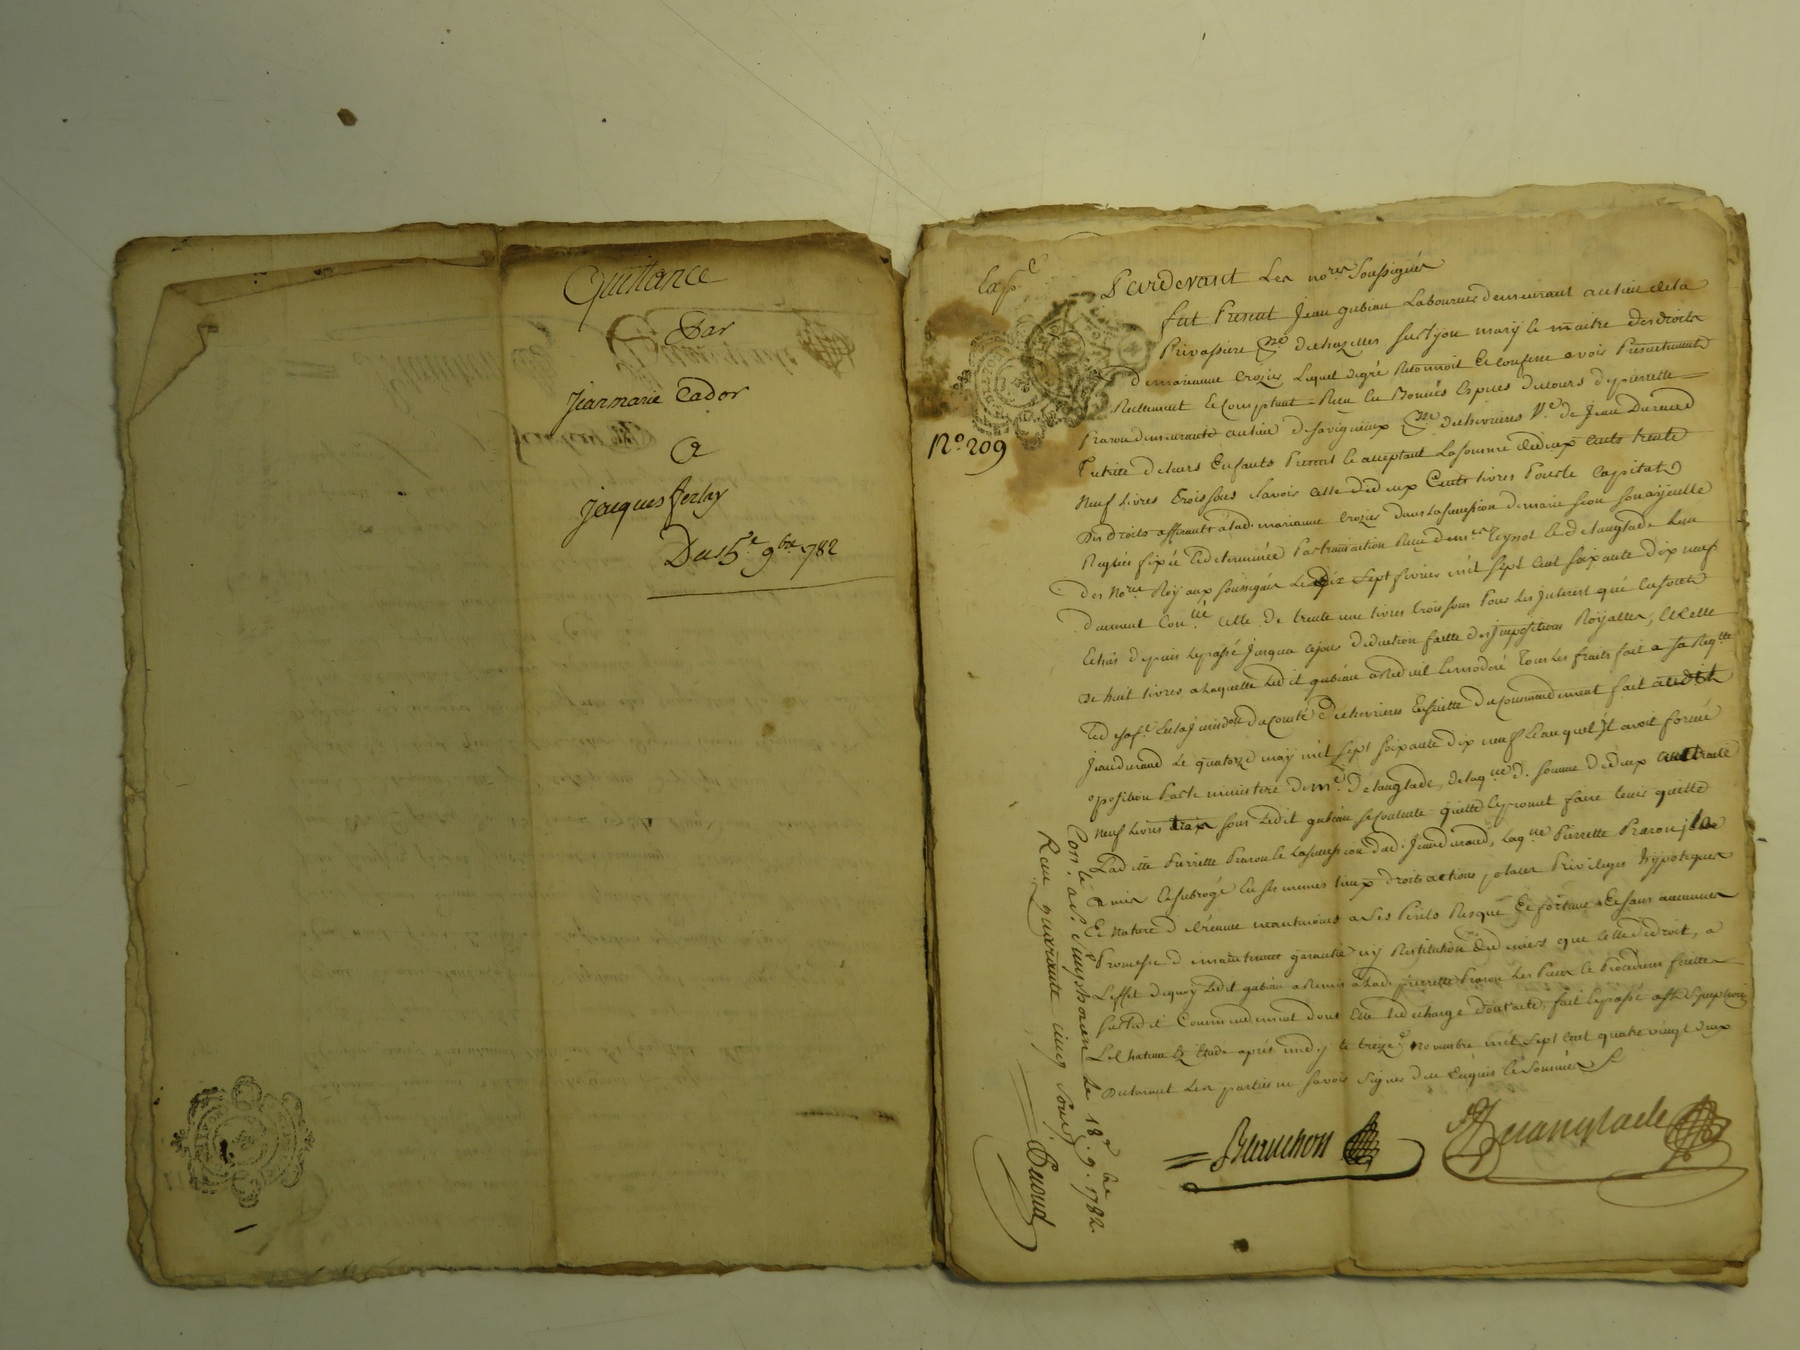 Quittance
Par
Jeanmarie Cador
A
Jacques Ferlay
Du 15e 9bre 1782
Exp.e
No. 209
Pardevant Les nores Soussignés
fut Present Jean gubian Laboureur demeurant au lieu de la
Privassiere de chazelles sur lyon mary et maitre des droits
de marianne Crozier Lequel de gré Reconnoit et confesse avoir Presentement
Reellement et Comptant Reçu en Bonnes Especes du cours de pierrette
Praron demeurante au lieu de savigneux de chevrieres Ve. de Jean Durand
Tutrice de leurs Enfants Presente et acceptant La somme de deux cents trente
Neuf Livres trois sous Savoir celle de deux Cents livres Pour le Capital
Des Droits afferants à lad. marianne Crozier dans La succession de marie son ayeulle
Reglée fixée et determinée Par transaction Reçue de mes. et delanglade L'un
Des Nores. Royaux soussignés Le dix Sept fevrier mil sept cent soixante dix neuf
duement Con.lée celle de trente une livres trois sous Pour Les Interest qui en sont
Echus depuis Le passé Jusqua ce jour deduction faitte des Impositions Royalles, et celle
de huit livres a Laquelle Ledit gubian a Reduit et moderé Tous Les fraits fait a sa Reqtte
En la Jurisdon du Comté de chevrieres Ensuitte du commandement fait audit
Jean durand Le quatorze may mil sept soixante dix neuf et auquel Il avoit formé
opposition Par le ministere de me. Delanglade, de laqlle. d. somme de deux cent trente
Neuf Livres trois sous Ledit gubian se contente quitte et promet faire tenir quitte
Laditte Pierrette Praron et La succession dud. Jean durand, Laqlle Pierrette Praron il a
a mis et subrogé En ses memes Lieux droits actions places Privileges hypoteques
Et Nature de Creance neantmoins a ses Perils Risque et fortune et sans aucune
Promesse de maintenue garantie ny Restitution de deniers que celle de droit, a
L'effet de quoy Ledit gubian a Remis à lade pierrette Praron Les Pieces et Procedures faittes
sur Ledit Commandement dont Elle Le decharge dont acte, fait et passé a St. Simphorien
Lel hateau Es Etude aprés midy le treize novembre mil sept cent quatre vingt deux
Declarant Les parties ne savoir signer de ce Enquis et sommées
Blanchon
Delanglade
Con.lé a St. Simphorien le 18e. 9bre. 1782.
Reçu quarante cinq sous